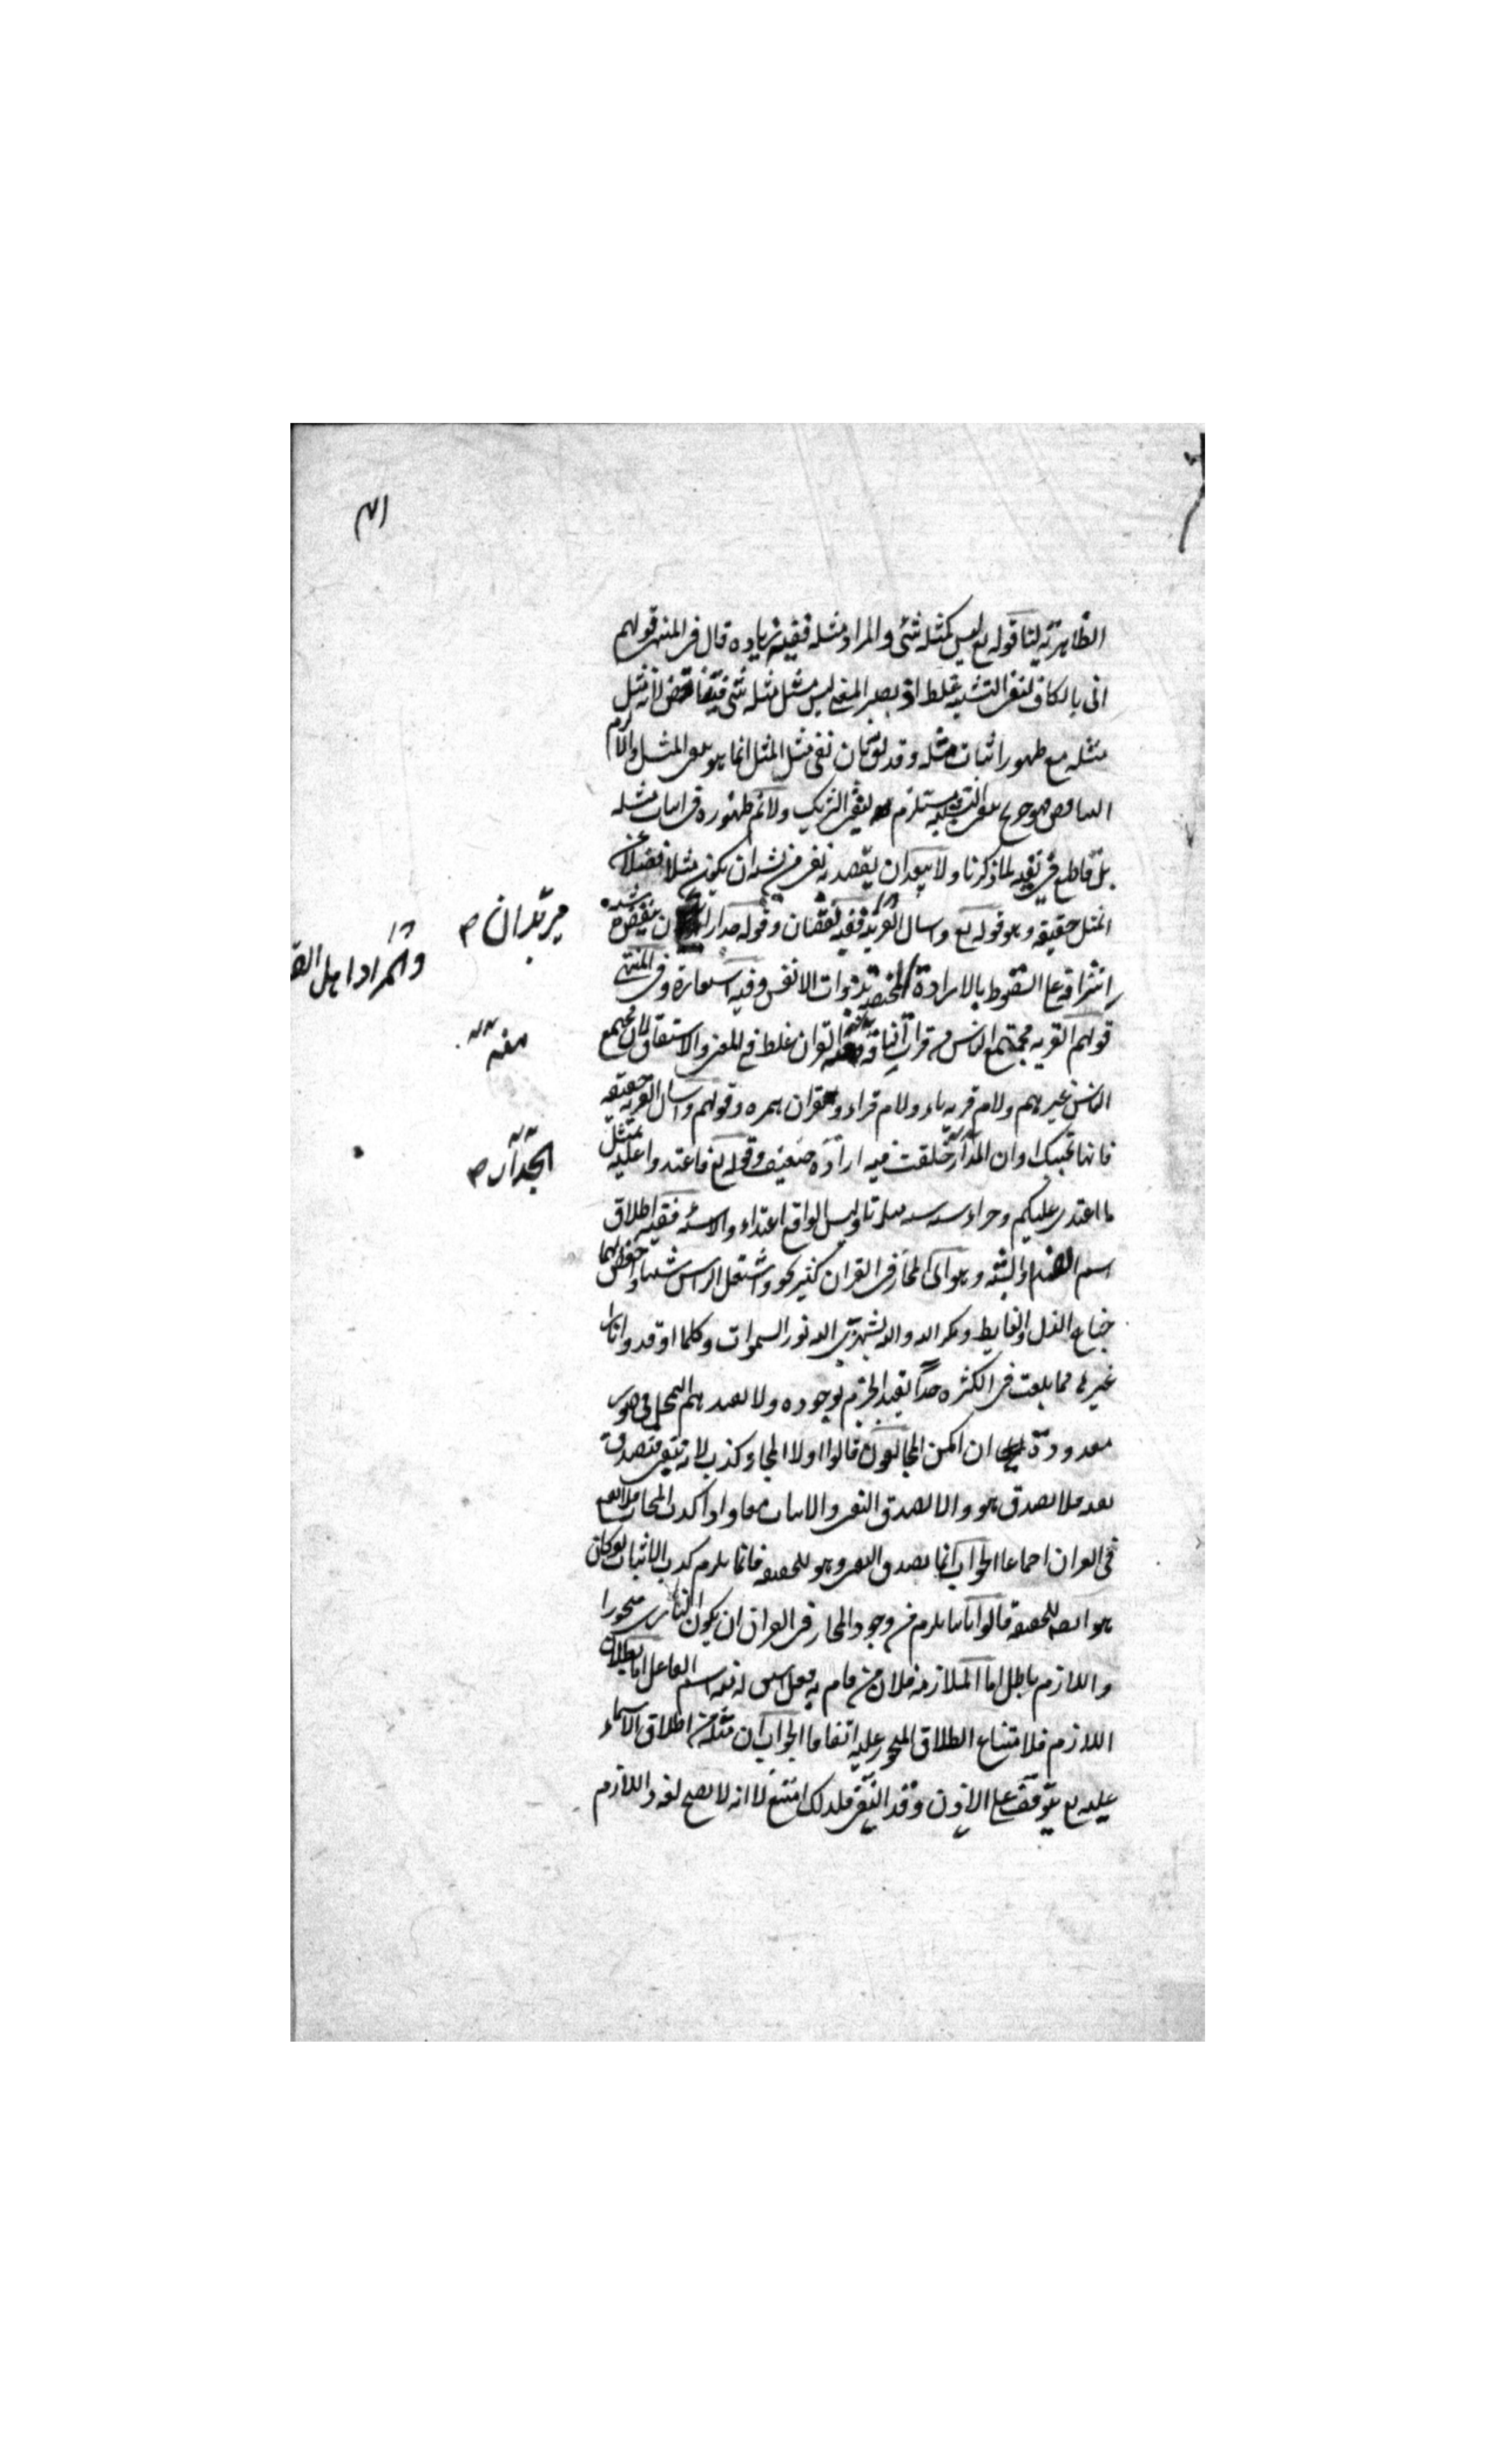 الظاهرية لنا قوله تع ليس كمثله شئ والمراد مثله ففيه زياده قال في المنتهى قولهم
انى بالكاف لنفى التشبيه غلط اذ يصير المعنى ليس مثل مثله شئ فيتناقض لانه مثل
مثله مع ظهور اثبات مثله وقد يق بان نفى مثل المثل انما هو بنفى المثل والا لزم
التناقض وهو يستلزم لنفى الشريك ولانم ظهوره في اثبات مثله
بل قاطع في نفيه لما ذكرنا ولا يبعد ان يقصد به نفى من يشبه ان يكون مثلا فضلا عن
المثل حقيقه وهو قوله تع واسال القرية ففيه نقصان وقوله جدارا ان ينقض شبه
اشرافه على السقوط بالارادة المختصة بذوات الانفس وفيه استعارة وفي المنتهى
قولهم القريه مجتمع الناس من قرات الناقة ومنه القران غلط في المعنى والاشتقاق لان مجتمع
الناس غيرهم ولام قريه ياء ولام قراء وقران همزه وقولهم واسال القرية حقيقه
فانها تجيبك وان الجدار خلقت فيه ارادة ضعيف وقوله تع فاعتدوا عليه بمثل
ما اعتدى عليكم وجزاء سيئه سيئه مثلها وليس الواقع اعتداء والاسيئه ففيه اطلاق
اسم الضد والشبه وهو اى المجاز في القران كثير نحو واشتعل الراس شيبا واخفض لهما
جناح الذل والغايط ومكر الله والله يستهزئ الله نور السموات وكلما اوقدوا نارا
غير ذلك مما بلغت في الكثره حدا يفيد الجزم بوجوده ولا يفيدهم التمحل في صور
معدودة ان امكن المخالفون قالوا اولا المجاز كذب لانه ينتفى فيصدق
نفيه فلا يصدق هو والا لصدق النفى والاثبات معا واذا كذب المجاز فلا يقع
في القران اجماعا الجواب انما يصدق النفى وهو للحقيقه فانما يلزم كذب الاثبات لو كان
هو ايضا للحقيقه قالوا ثانيا يلزم من وجود المجاز في القران ان يكون البارى متجوزا
واللازم باطل اما الملازمه فلان من قام به فعل اشتق له منه اسم الفاعل اما بطلان
اللازم فلامتناع اطلاق المتجوز عليه اتفاقا الجواب ان مثله من اطلاق الاسماء
عليه تع يتوقف على الاذن وقد انتفى فلذلك امتنع لا انه لا يصح لغه واللازم
يريد ان ص
والمراد اهل
منه
الجدار ص